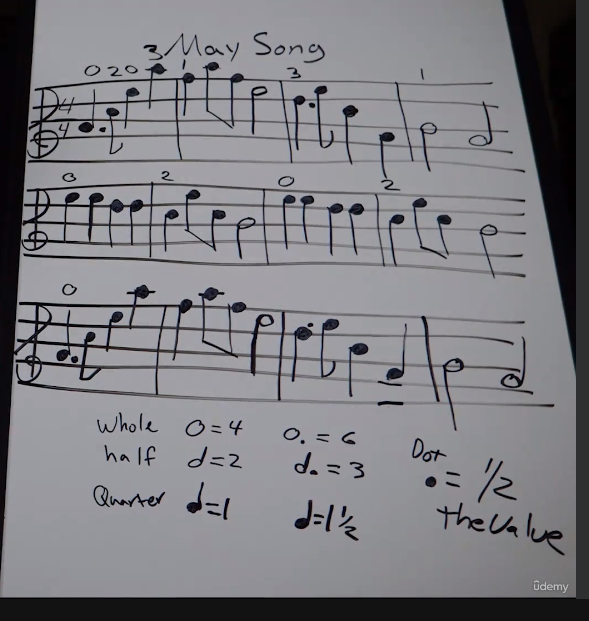 May Song
0 2 0 3 1 3 1
4
4
0 2 0 2
0
Whole O = 4 O. = 6 Dot
half d = 2 d. = 3 . = 1/2
Quarter d = 1 d = 1 1/2 the Value
ûdemy